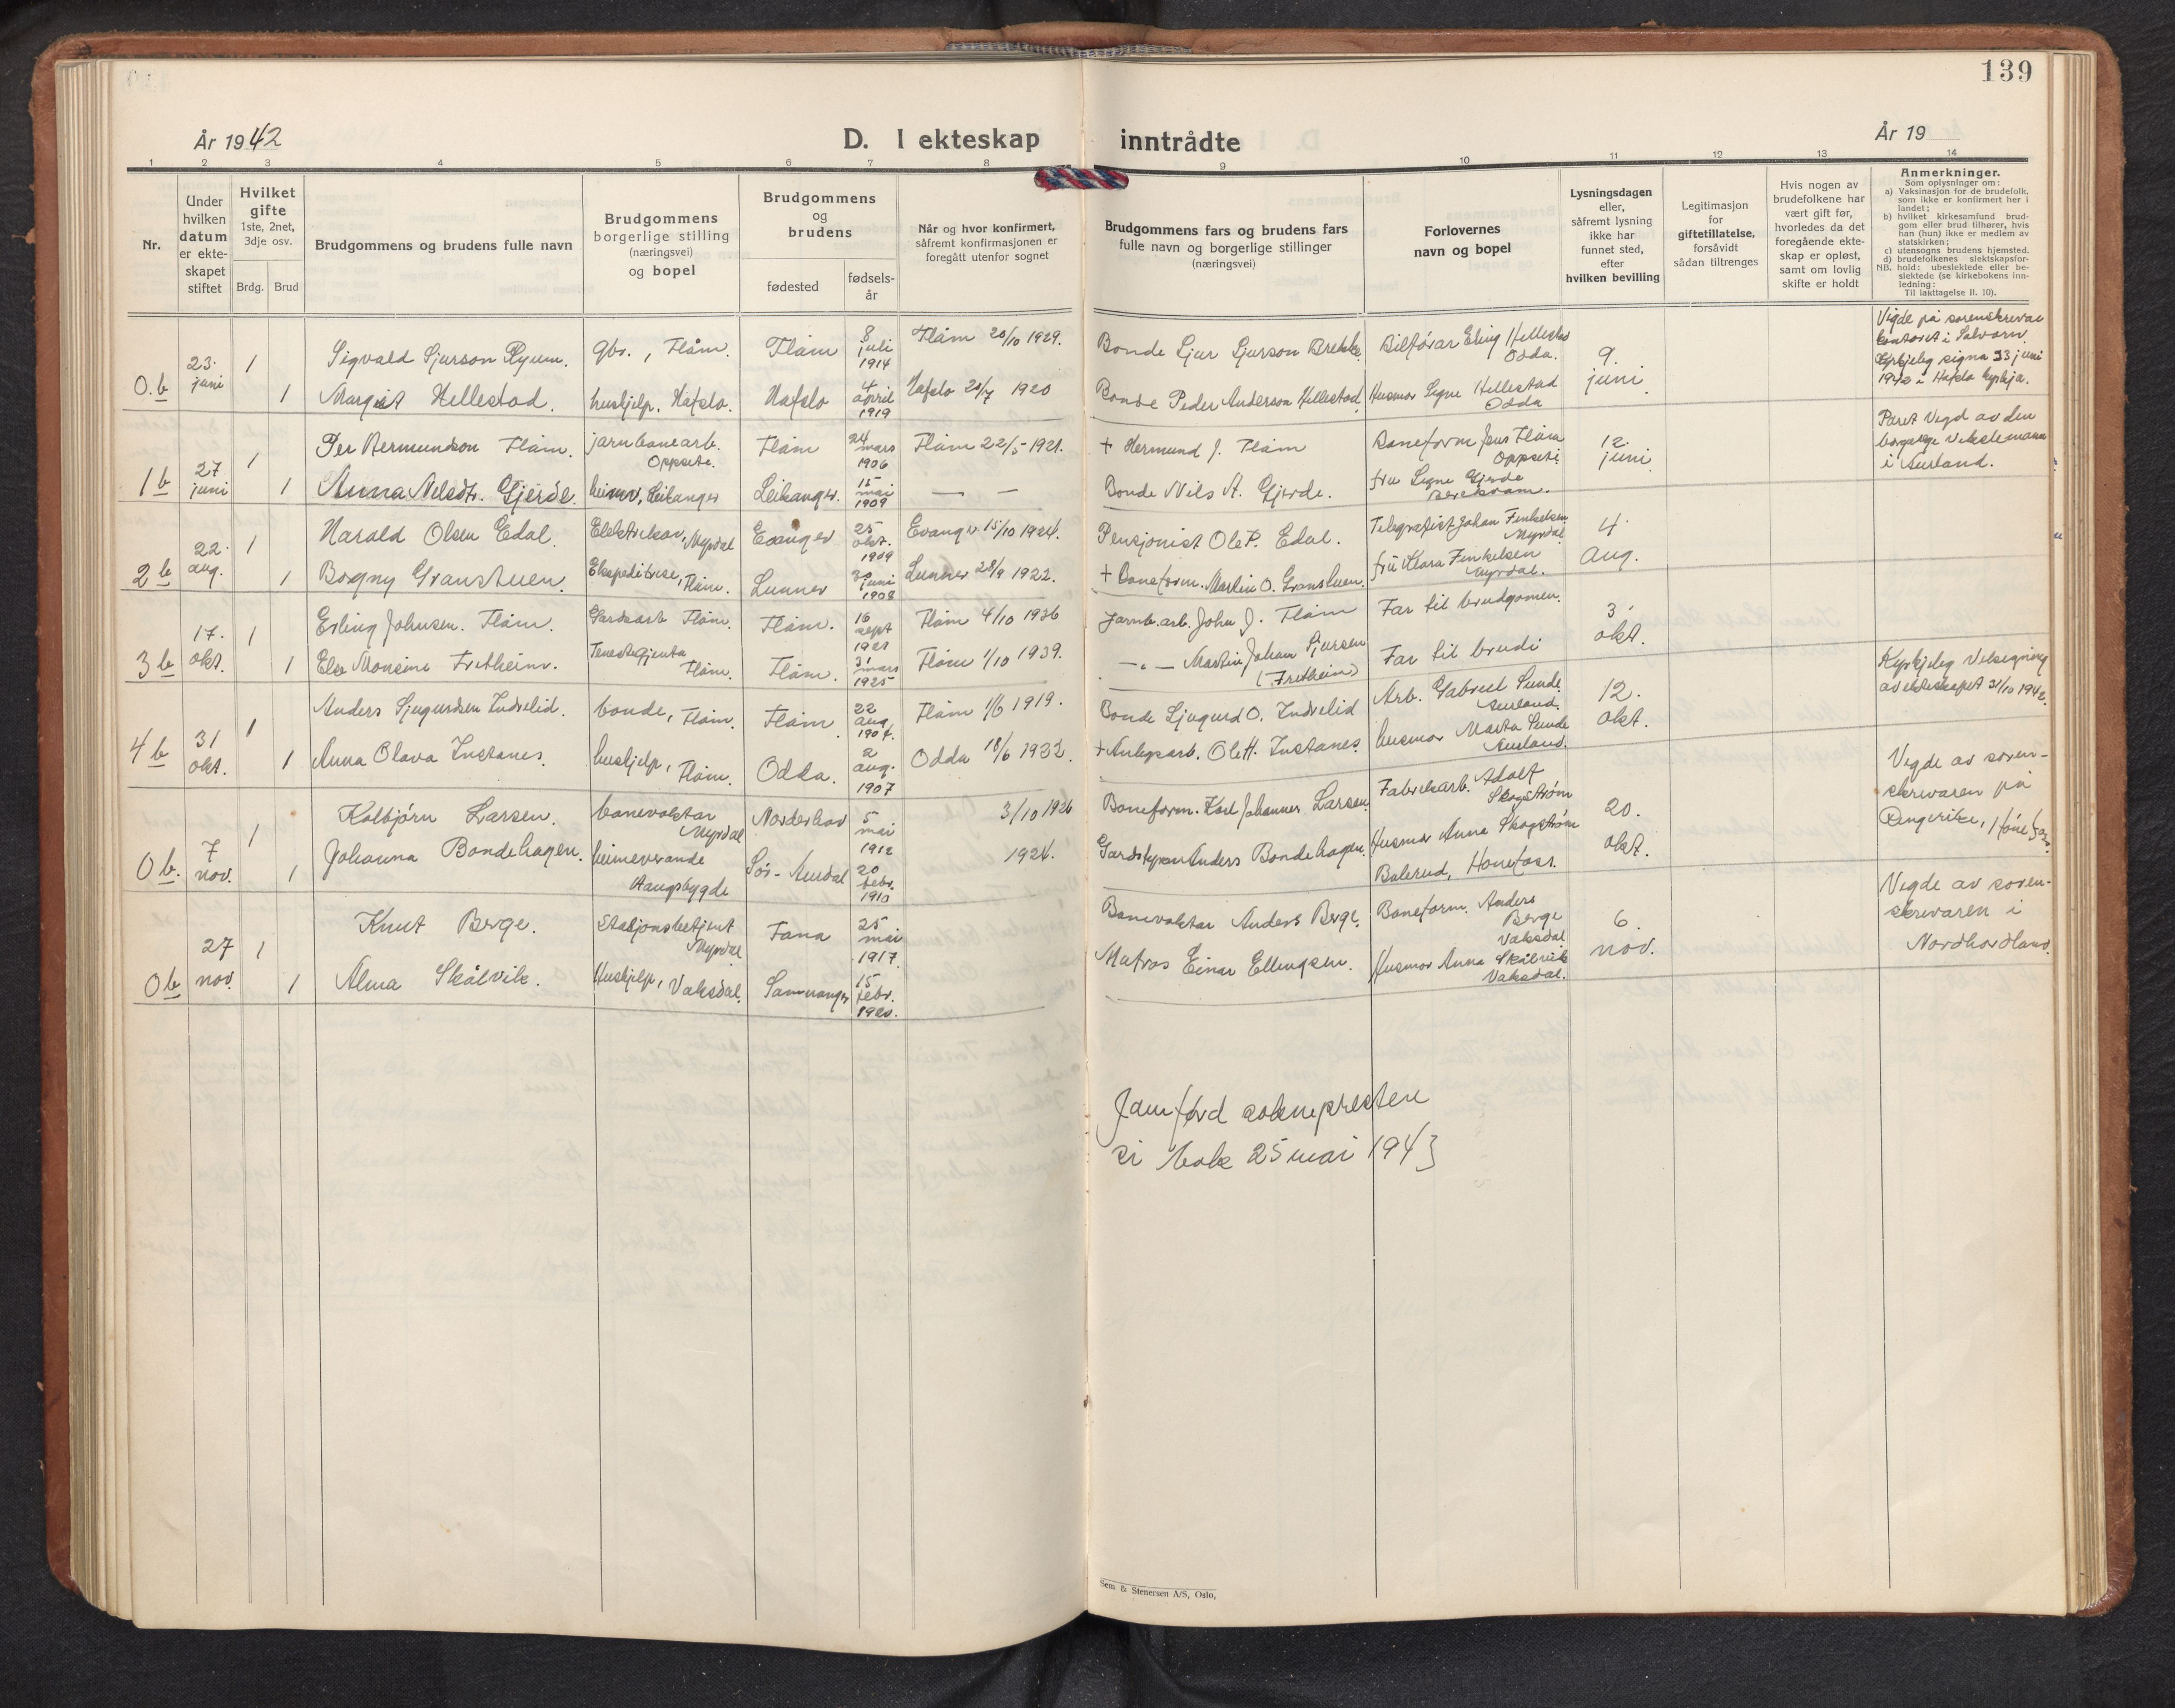 139
År 1942
D. I ekteskap inntrådte
År 19
1 2 3 4 5 6 7 8 9 10 11 12 13 14
Nr.
Under hvilken datum er ekte-skapet stiftet
Hvilket gifte 1ste, 2net, 3dje osv.
Brdg. Brud
Brudgommens og brudens fulle navn
Brudgommens borgerlige stilling (næringsvei) og bopel
Brudgommens og brudens
fødested
fødsels-år
Når og hvor konfirmert, såfremt konfirmasjonen er foregått utenfor sognet
Brudgommens fars og brudens fars fulle navn og borgerlige stillinger (næringsvei)
Forlovernes navn og bopel
Lysningsdagen eller, såfremt lysning ikke har funnet sted, efter hvilken bevilling
Legitimasjon for giftetillatelse, forsåvidt sådan tiltrenges
Hvis nogen av brudefolkene har vært gift før, hvorledes da det foregående ekte-skap er opløst, samt om lovlig skifte er holdt
Anmerkninger.
Som oplysninger om:
a) Vaksinasjon for de brudefolk, som ikke er konfirmert her i landet;
b) hvilket kirkesamfund brud-gom eller brud tilhører, hvis han (hun) ikke er medlem av statskirken;
c) utensogns brudens hjemsted.
d) brudefolkenes slektskapsfor-hold: ubeslektede eller be-slektede (se kirkebokens inn-ledning:
NB. Til iakttagelse II. 10).
0.b 23. juni 1 Sigvald Sjurson Ryum. gbr., Flåm. Flåm 8 juli 1914 Flåm 20/10 1929. Bonde Sjur Sjurson Brekke. Bilførar Eling Hellestad Odda. 9. juni
1 Margit Hellestad. hushjelp. Hafslo. Hafslo 4 april 1919 Hafslo 20/7 1920 Bonde Peder Anderson Hellestad Husmor Signe Hellestad Odda
Vigde på sorenskrivar
kontoret i Solvorn.
Kyrkjeleg signa 23 juni
1942 i Hafslo kyrkja.
1b 27 juni 1 Per Hermundson Flåm. jarnbanearb. Oppsete. Flåm 24 mars 1906 Flåm 22/5-1921. + Hermund J. Flåm Baneform Jens Flåm Oppsete 12. juni
1 Anna Nelsdtr. Gjerde. heimv, Leikanger Leikanger. 15 mai 1909 — — Bonde Nils A. Gjerde. fru Signe Gjerde
Paret Vigd av den
borgarlege Vikslemann
i Aurland.
2b 22. aug. 1 Harald Olsen Edal. Elektrikar, Myrdal Evanger 25 okt. 1909 Evanger 15/10 1924. Pensjonist Ole P. Edal. Telegrafist Johan Finkelsen Myrdal 4. aug.
1 Borgny Granstuen. Ekspeditrise, Flåm. Lunner juni 1908 Lunner 28/9 1922. + Baneform. Martin O. Granstuen. fru Klara Finkelsen Myrdal.
3b 17. okt. 1 Erling Johnsen. Flåm. Gardsarb Flåm. Flåm. 16 sept 1921 Flåm 4/10 1936 Jarnb.arb. John J. Flåm Far til brudgomen. 3. okt.
1 Else Monsine Fretheim. Tenestegjenta Flåm. Flåm. 31 mars 1925 Flåm 1/10 1939. — " — Martin Johan Sjursen (Fretheim) Far til brudi
4b 31 okt. 1 Anders Sjugurdsen Indrelid. bonde, Flåm. Flåm 22 aug. 1904. Flåm 1/6 1919. Bonde Sjugurd O. Indrelid Arb. Gabriel Sunde Aurland. 12. okt.
1 Anna Olava Instanes. hushjelp, Flåm. Odda. 2 aug. 1907 Odda 18/6 1922. + Anlegsarb. Ole H. Instanes. husmor Marta Sunde Aurland.
Kyrkjeleg Velsegning
av ekteskapet 31/10 1942.
0b. 7 nov. 1 Kolbjørn Larsen. banevaktar Myrdal Norderhov 5 mai 1912 3/10 1926 Baneform. Karl Johannes Larsen. Fabrikarb. Adolf Skogstrøm 20. okt.
1 Johanna Bondehagen. heimeverande Haugsbygde Sør-Aurdal 20 febr. 1910 1924. Gardstyrar Anders Bondehagen. Husmor Anna Skogstrøm Balerud, Hønefoss.
Vigde av soren-
skrivaren på
Ringerike, Hønefoss.
0b 27 nov. 1 Knut Berge. Stasjonsbetjent Myrdal Fana 25 mai 1917. Banevaktar Anders Berge. Baneform. Anders Berge Vaksdal 6. nov.
1 Alma Skålvik. Hushjelp, Vaksdal. Samnanger 15 febr. 1920. Matros Einar Ellingsen. Husmor Anna Skålvik Vaksdal.
Vigde av soren-
skrivaren i
Nordhordland.
Jamførd soknepresten
si bok 25 mai 1943
Sem & Stenersen A/S, Oslo,